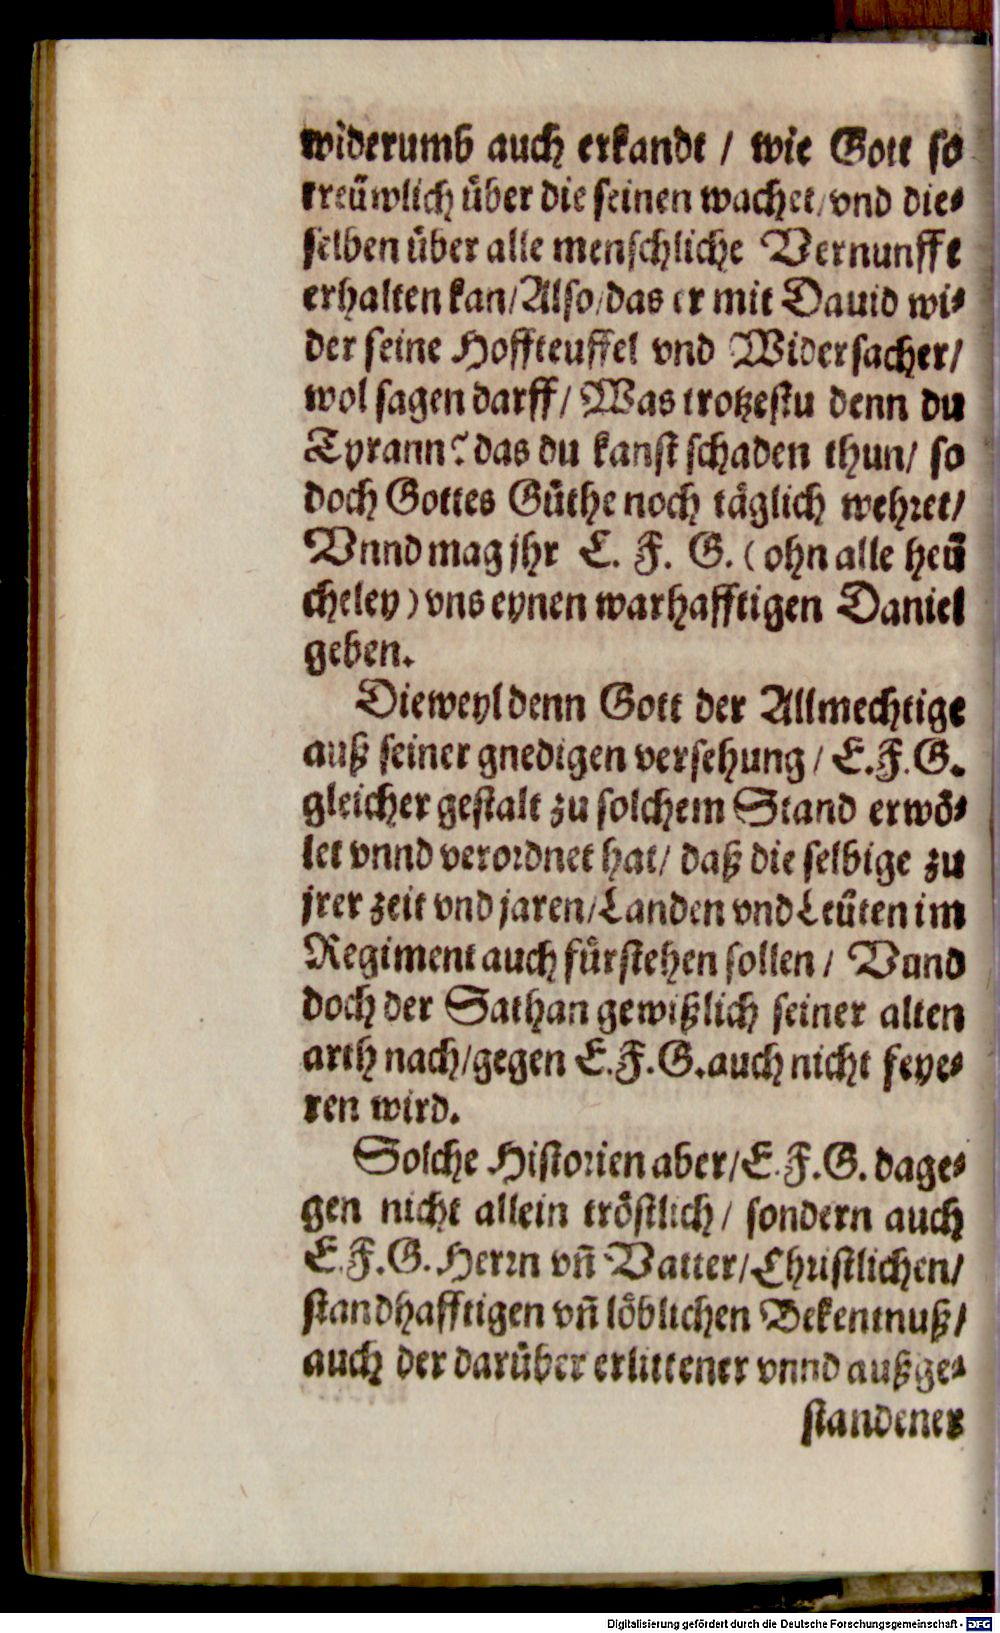 widerumb auch erkandt / wie Gott so
treüwlich über die seinen wachet / vnd die⸗
selben über alle menschliche Vernunfft
erhalten kan / Also / das er mit Dauid wi⸗
der seine Hoffteuffel vnd Widersacher /
wol sagen darff / Was trotzestu denn du
Tyrann? das du kanst schaden thun / so
doch Gottes Güthe noch täglich wehret /
Vnnd mag jhr E. F. G. ( ohn alle heü
cheley ) vns eynen warhafftigen Daniel
geben.
Dieweyl denn Gott der Allmechtige
auß seiner gnedigen versehung / E. F. G.
gleicher gestalt zu solchem Stand erwö⸗
let vnnd verordnet hat / daß die selbige zu
jrer zeit vnd jaren / Landen vnd Leüten im
Regiment auch fürstehen sollen / Vnnd
doch der Sathan gewißlich seiner alten
arth nach / gegen E. F. G. auch nicht feye⸗
ren wird.
Solche Historien aber / E. F. G. dage⸗
gen nicht allein tröstlich / sondern auch
E. F. G. Herrn vñ Vatter / Christlichen /
standhafftigen vñ löblichen Bekentnuß /
auch der darüber erlittener vnnd außge⸗
standener
Digitalisierung gefördert durch die Deutsche Forschungsgemeinschaft - DFG